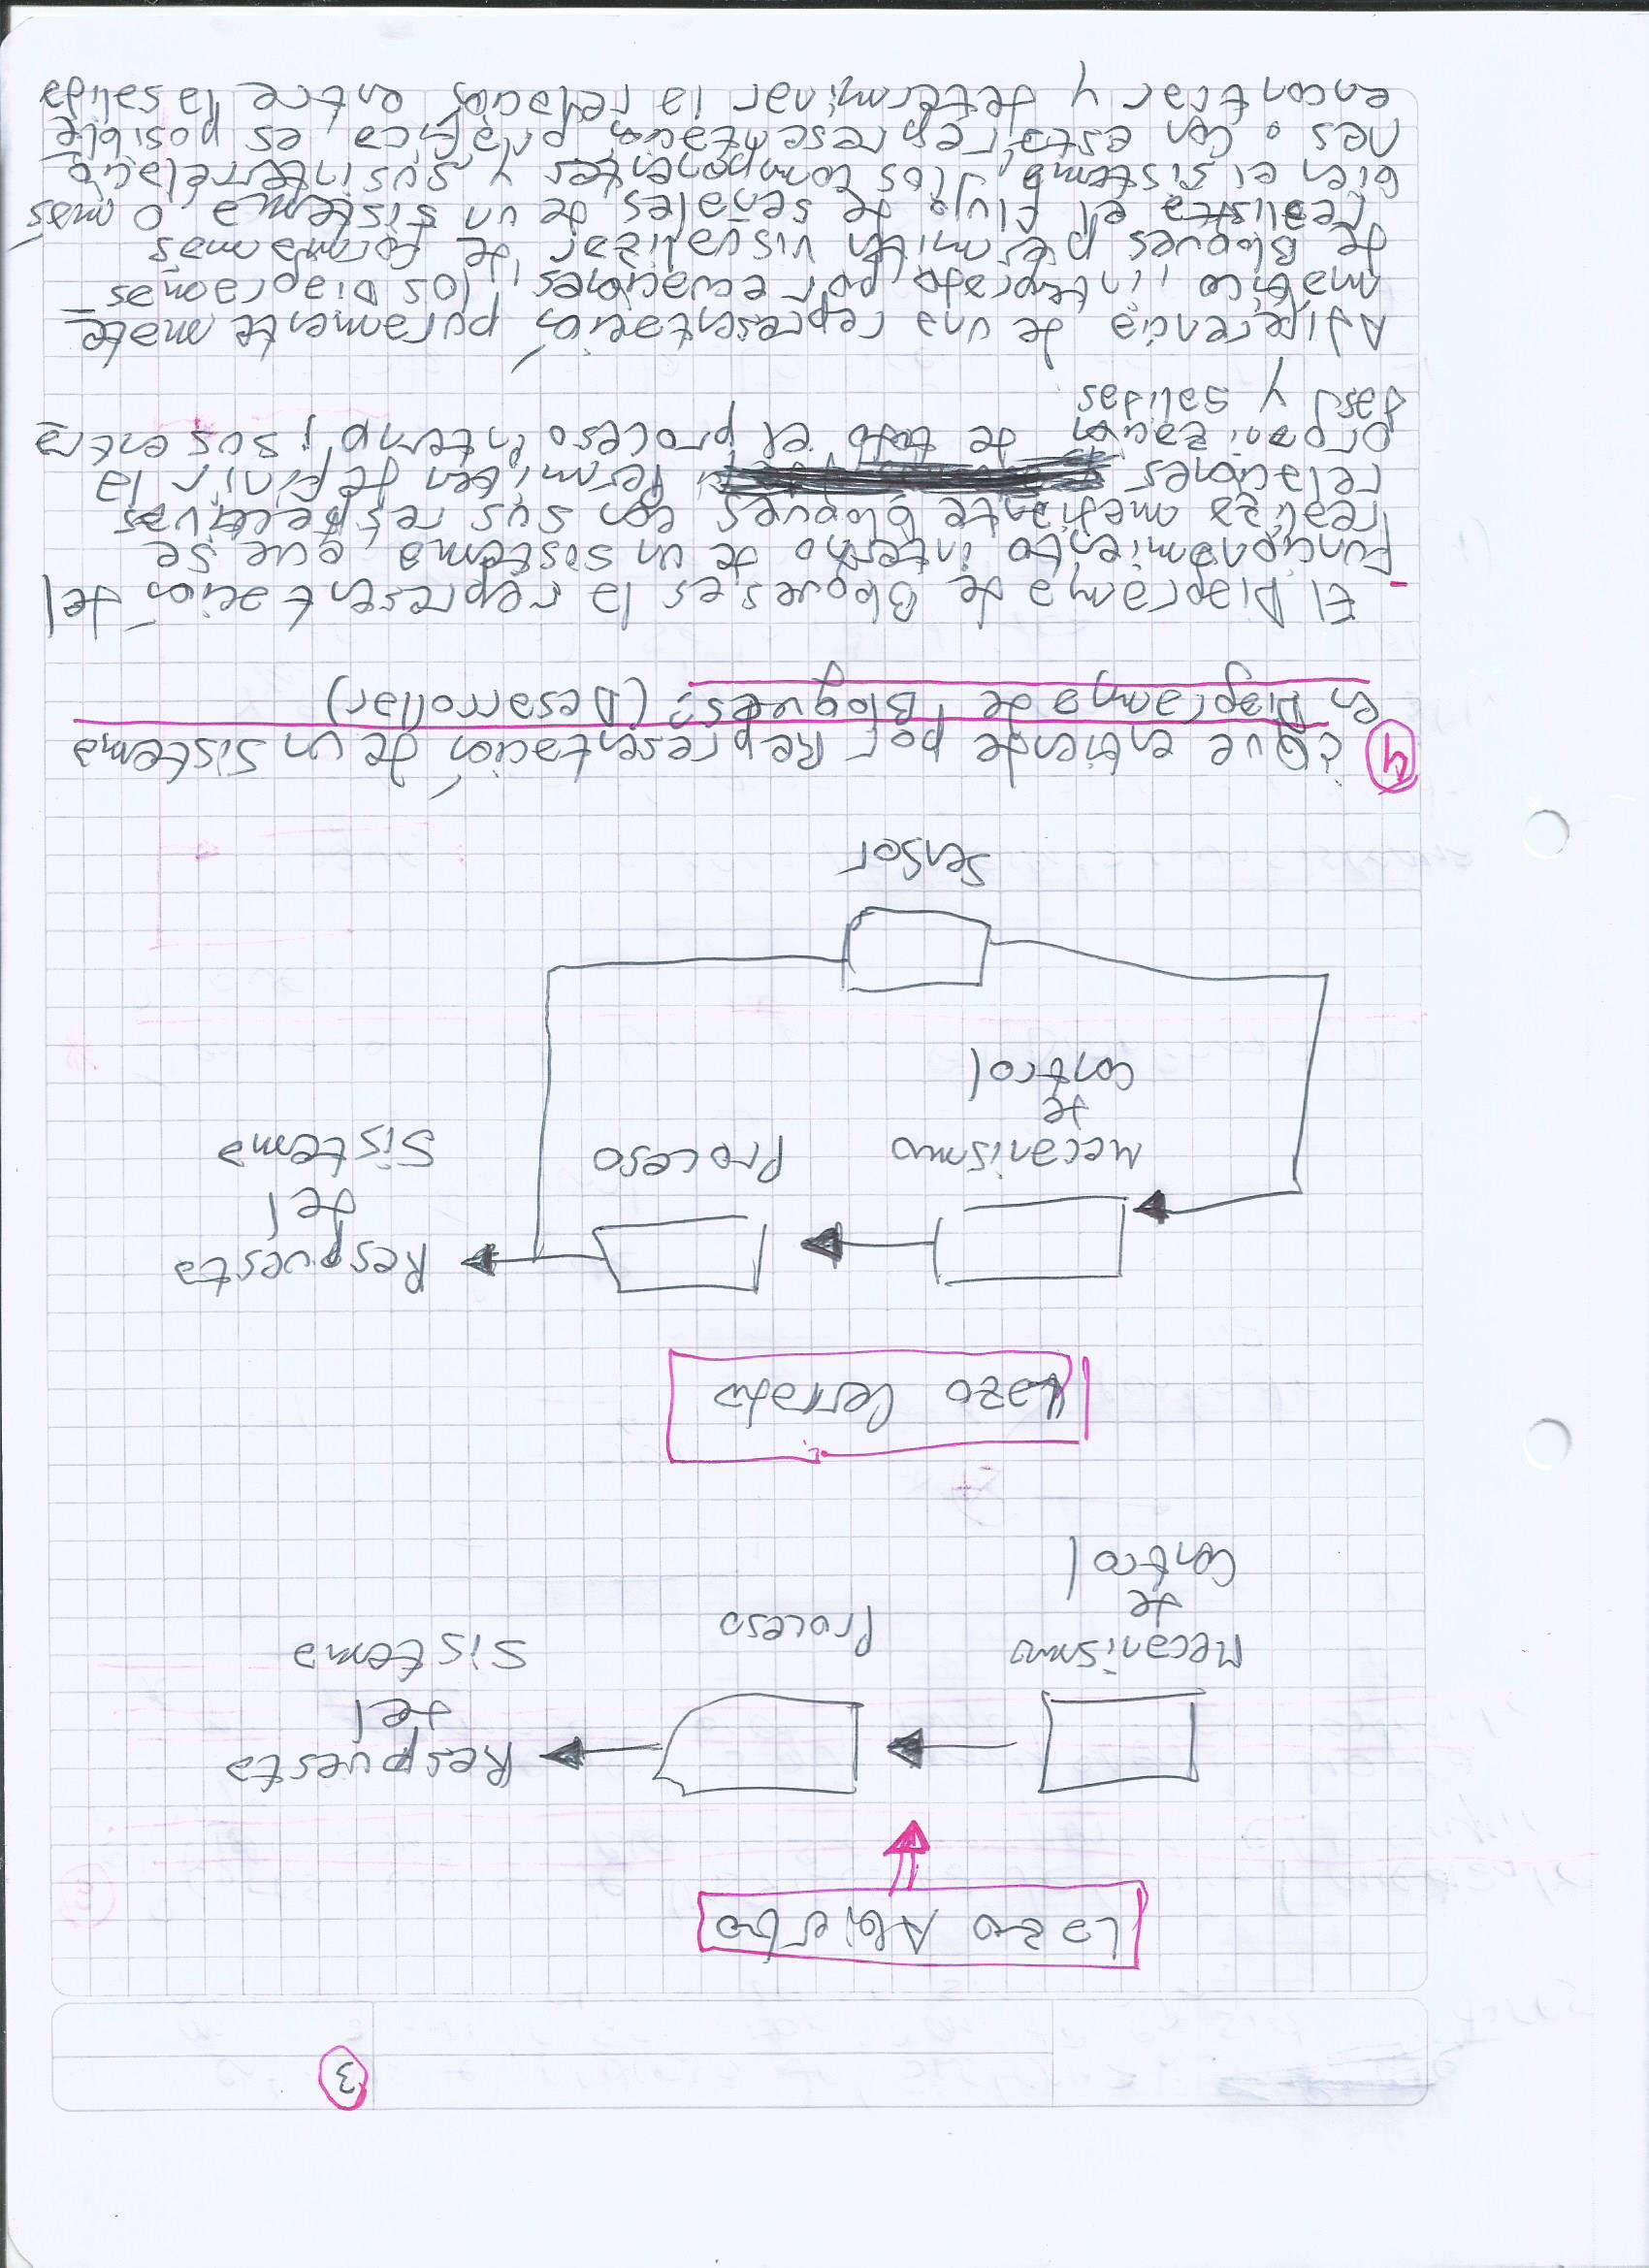 3
Lazo Abierto
Respuesta
del
Sistema
Mecanismo
de
Control
Proceso
Lazo Cerrado
Respuesta
del
Sistema
Mecanismo
de
Control
Proceso
Sensor
4 ¿Que entiende por Representación de un Sistema
en Diagrama de Bloques? (Desarrollar)
- El Diagrama de Bloques, es la representación del
funcionamiento interno de un sistema, que se
realiza mediante bloques con sus respectivas
relaciones Permiten definir la
organización de todo el proceso interno, sus entra
das y salidas.
A diferencia de una representación puramente mate
mático, integrado por ecuaciones, los Diagramas
de Bloques permiten visualizar de forma más
realista el flujo de señales de un sistema, o más
bien el sistema, los componentes y sus interrelacio
nes. Con esta representación gráfica, es posible
encontrar y determinar la relación entre la salida